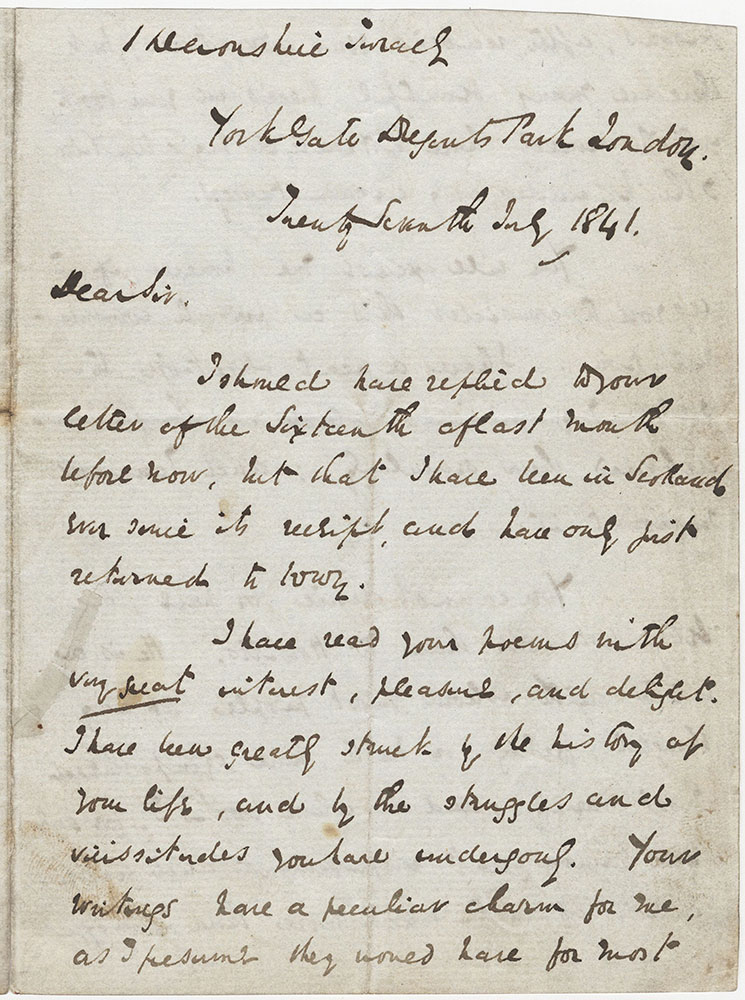 1 Devonshire Terrace
York Gate Regents Park London.
Twenty Seventh July 1841.
Dear Sir.
I should have replied to your
letter of the Sixteenth of last month
before now, but that I have been in Scotland
ever since its receipt, and have only just
returned to town.
I have read your poems with
very great interest, pleasure, and delight.
I have been greatly struck by the history of
your life, and by the struggles and
vicissitudes you have undergone. Your
writings have a peculiar charm for me,
as I presume they would have for most